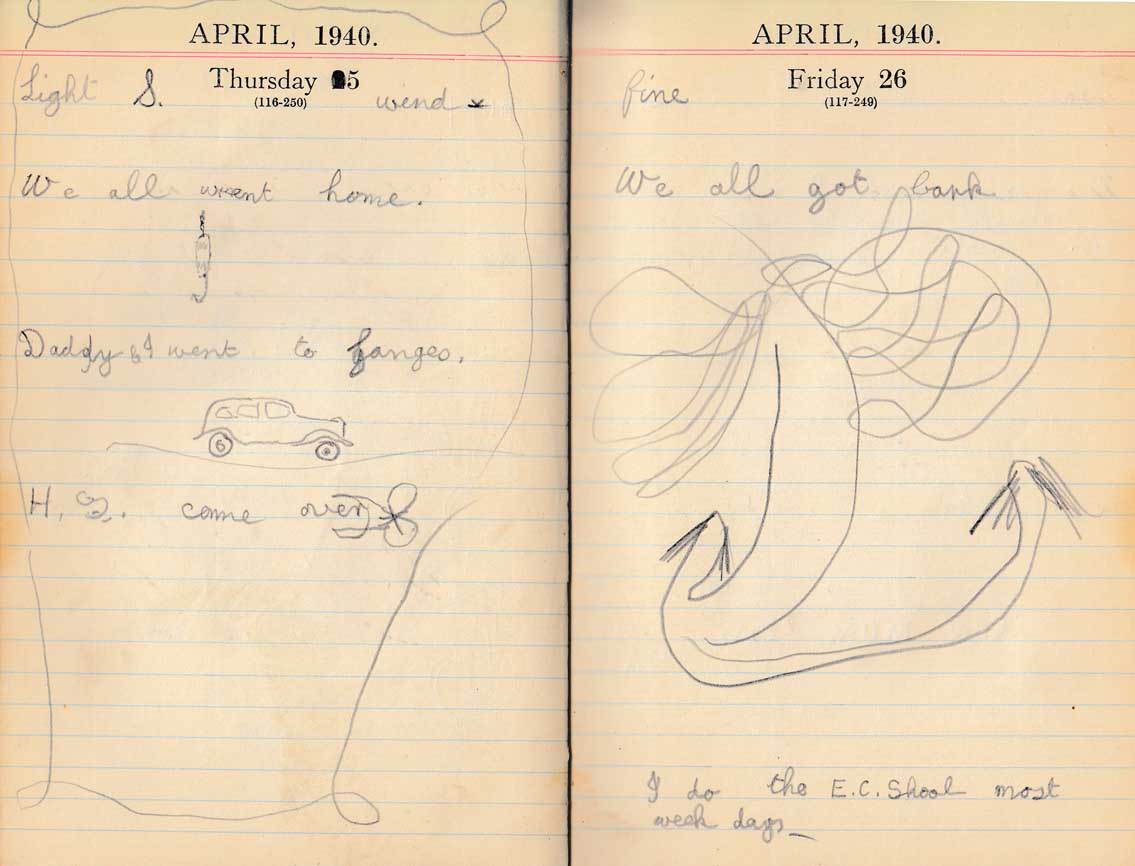 APRIL, 1940.
Thursday 25
(116-250)
Light S. wind
We all went home.
Daddy & I went to Ganges.
H, come over
APRIL, 1940.
Friday 26
(117-249)
fine
We all got bark
I do the E.C. Shool most
week days_